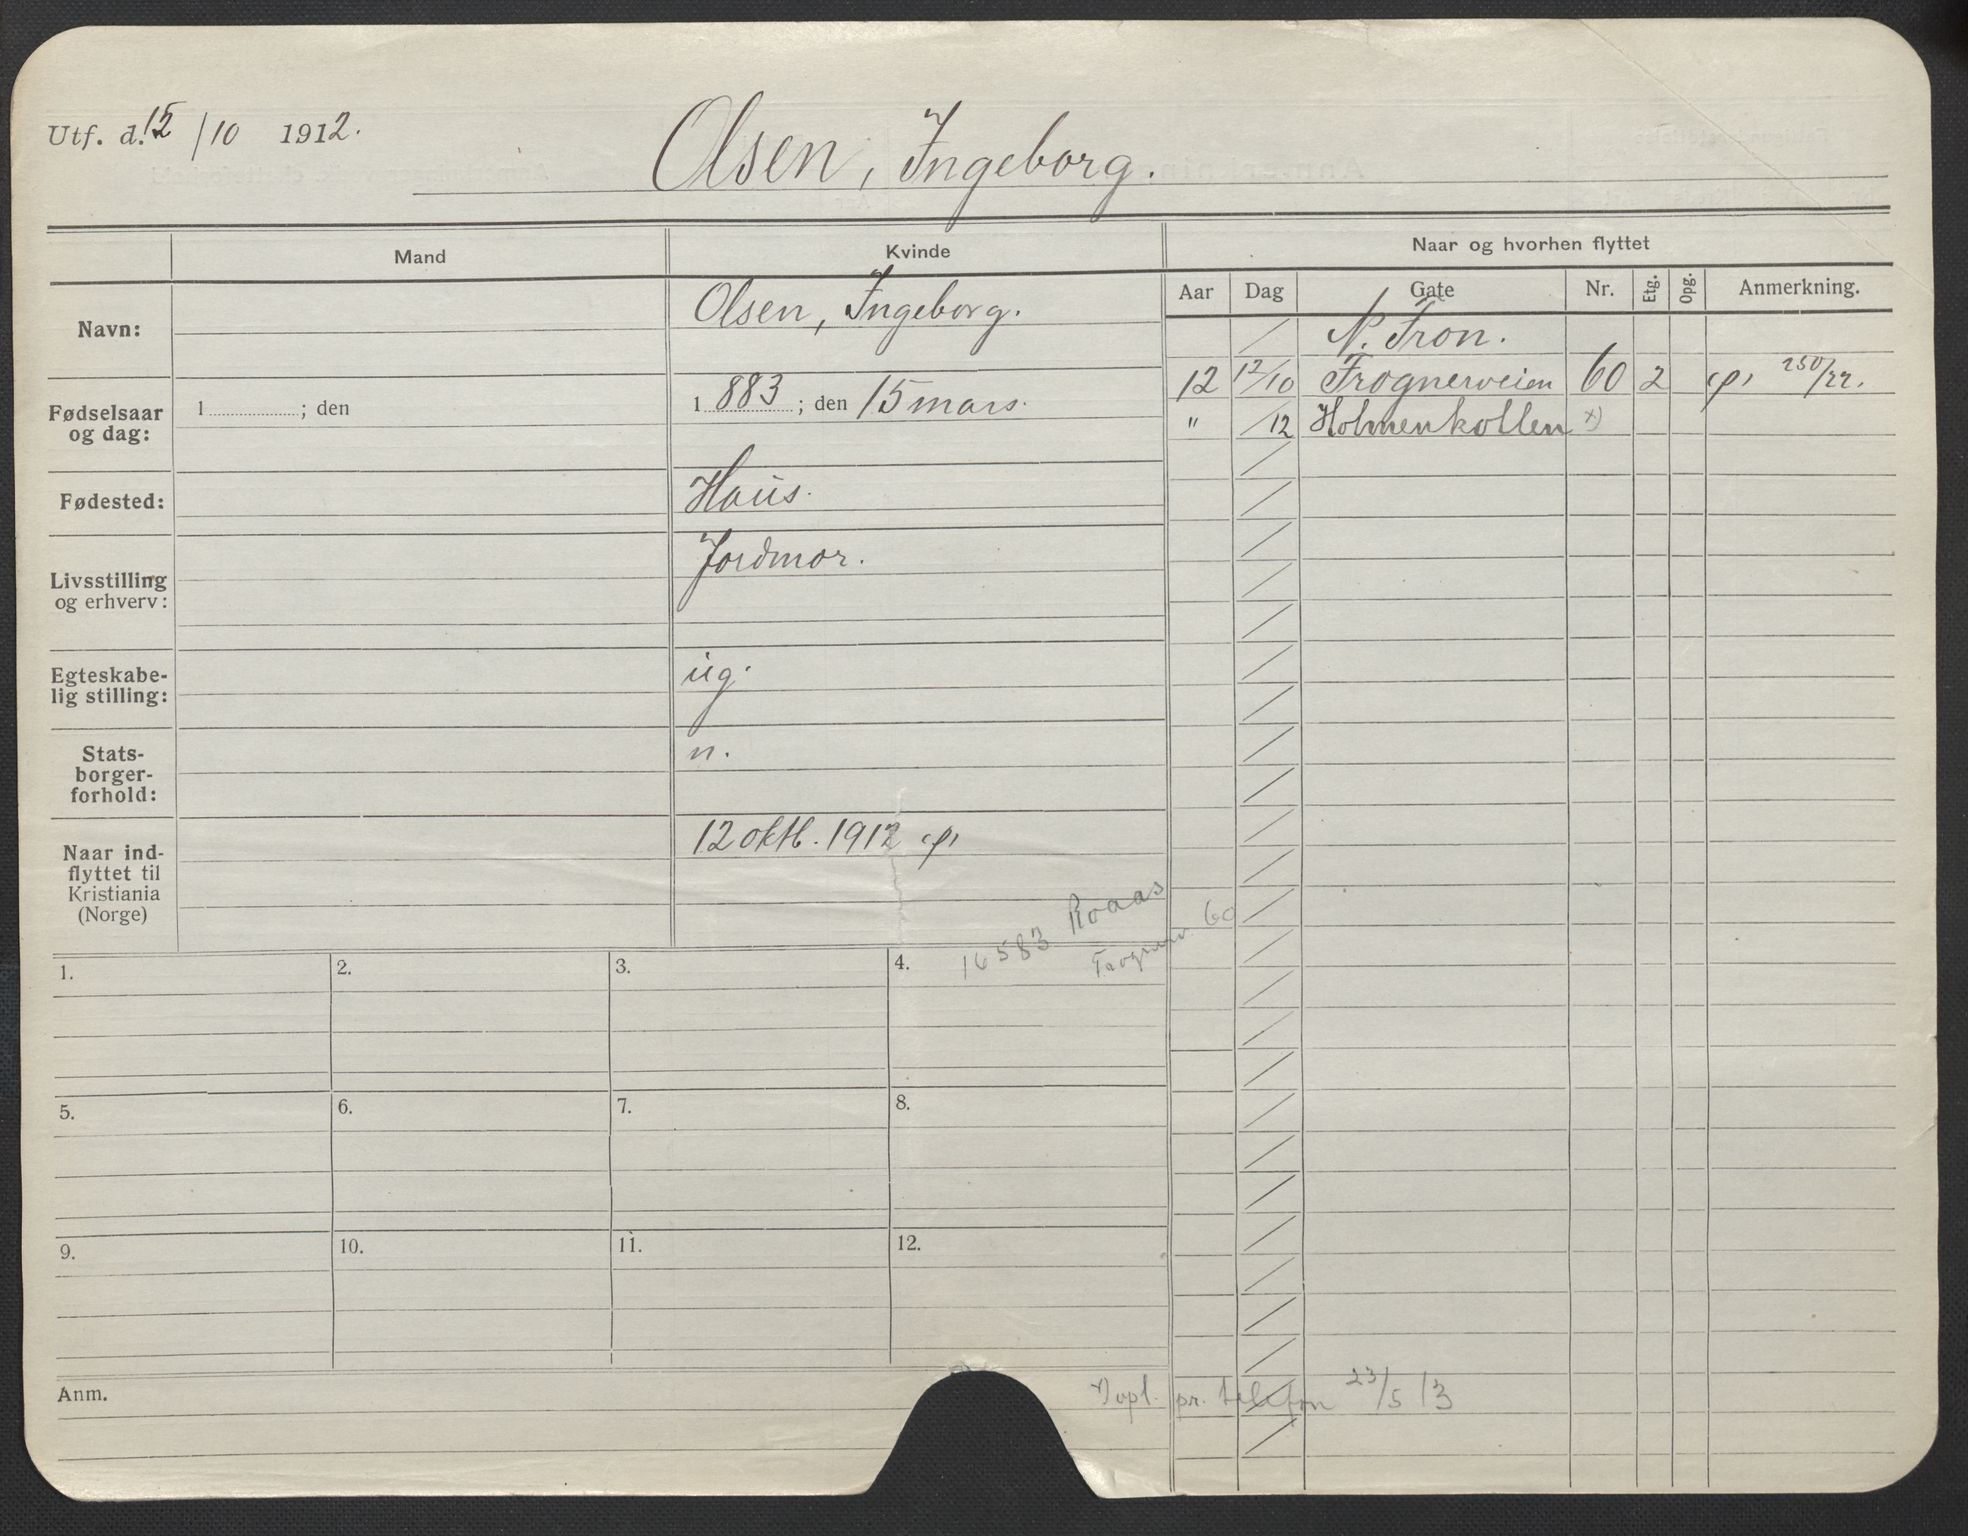 Utf. d. 15/10 1912.
Olsen, Ingeborg.
Mand
Kvinde
Naar og hvorhen flyttet
Aar Dag Gate Nr. Etg. Opg. Anmerkning.
Navn:
Olsen, Ingeborg.
N. Fron.
12 12/10 Frognerveien 60 2 250/22.
Fødselsaar
og dag:
1 ; den
1883; den 15 mars.
" /12 Holmenkollen x)
Fødested:
Haus.
Livsstilling
og erhverv:
Jordmor.
Egteskabe-
lig stilling:
ug.
Stats-
borger-
forhold:
n.
Naar ind-
flyttet til
Kristiania
(Norge)
12 oktb. 1912
16583 Roaas
Frognerv. 60
1. 2. 3. 4.
5. 6. 7. 8.
9. 10. 11. 12.
Anm.
x) opl. pr. telefon 23/5 13